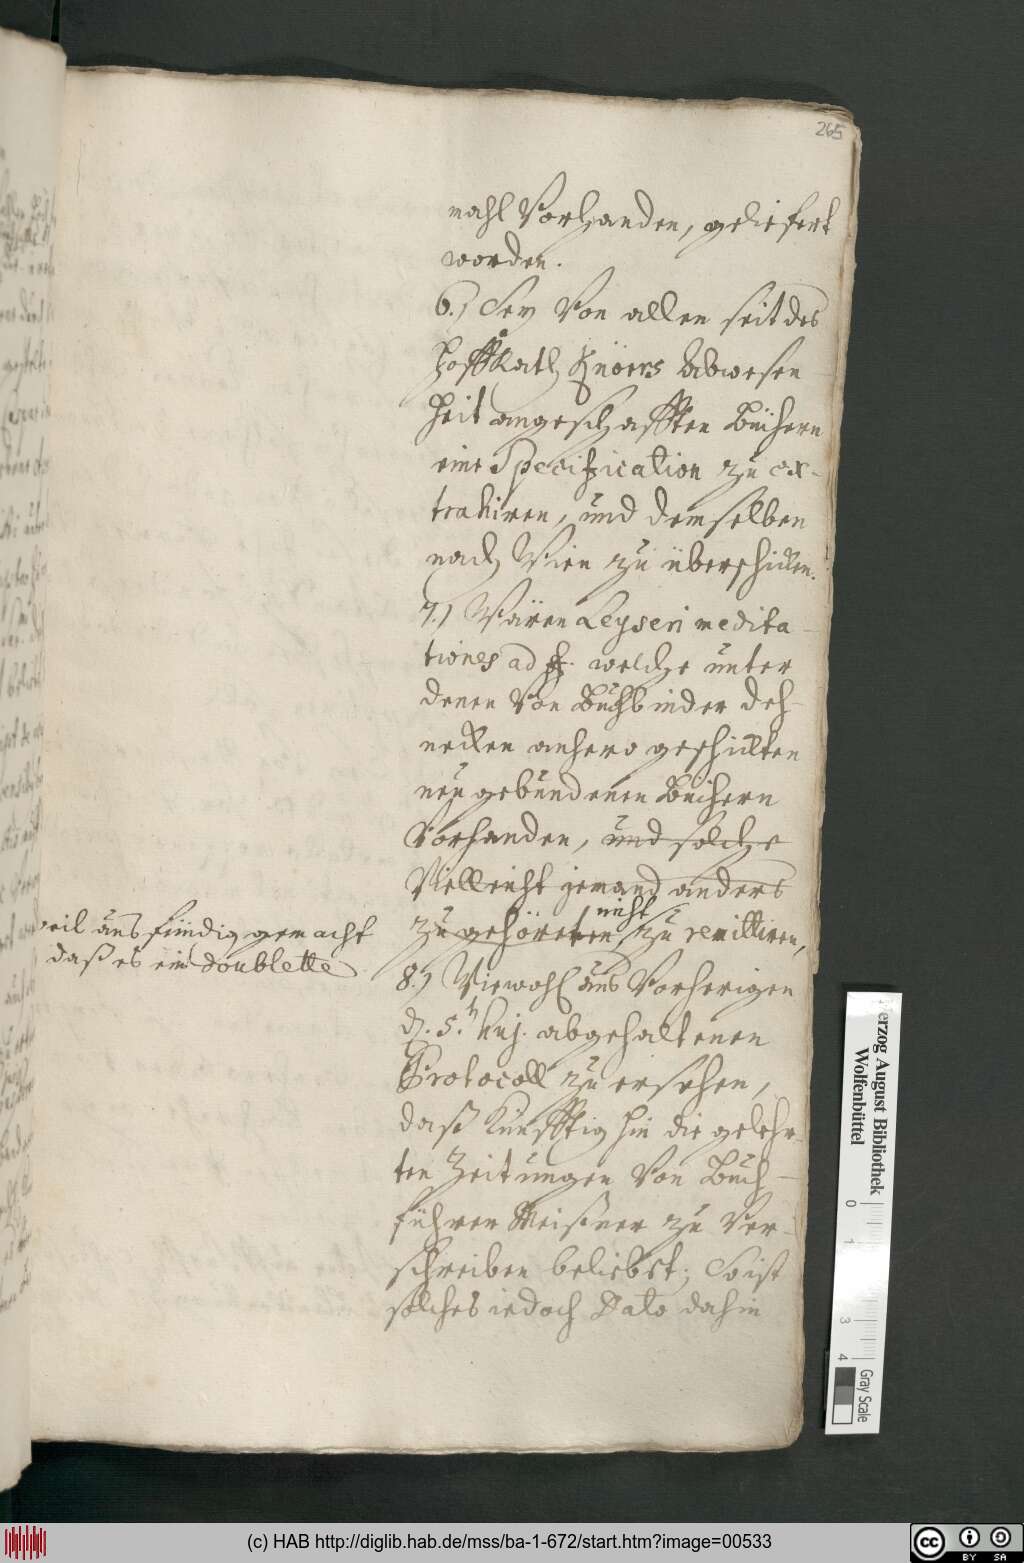 265
mahl Vorhanden, geliefert
worden.
6.) Sey Von allen seit des
HoffRath Knörs Abwesen
heit angeschafften Büchern
eine Specification zu ex-
trahiren, und demselben
nach Wien zu überschicken.
7.) Wären Leyseri medita
tiones ad ff. welche unter
denen Von Buchbinder Deh-
necken anhero geschickten
neu gebundenen Büchern
vorhanden, und solche
Vielleicht jemand anders
zu gehöreten nicht zu remittiren,
weil ausfündig gemacht
daß es ein doublette
8.) Wiewohl aus Vorherigen
d. 5.ten huj. abgehaltenen
Protocoll zu ersehen,
daß künfftig hin die gelehr-
ten Zeitungen Von Buch-
führer Meißner zu Ver-
schreiben beliebet; So ist
solches iedoch Dato dahin
Herzog August Bibliothek
Wolfenbüttel
0
1
3
4
Gray Scale
(c) HAB http://diglib.hab.de/mss/ba-1-672/start.htm?image=00533
cc BY SA